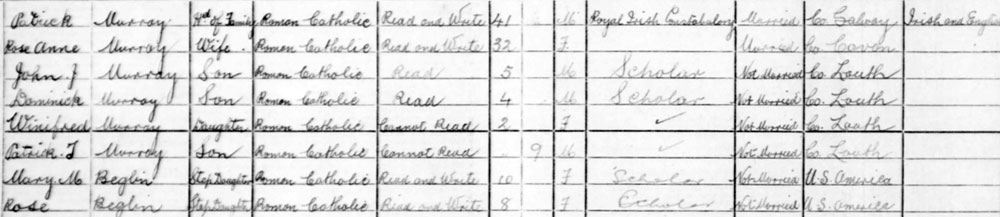 Patrick Murray Hd of Family Roman Catholic Read and Write 41 M Royal Irish Constabulary Married Co. Galway Irish and Englis
Rose Anne Murray Wife. Roman Catholic Read and Write 32 F Married Co Cavan
John J Murray Son Roman Catholic Read 5 M Scholar Not Married Co. Louth
Dominick Murray Son Roman Catholic Read 4 M Scholar Not Married Co. Louth
Winifred Murray Daughter Roman Catholic Cannot Read 2 F ✓ Not Married Co. Louth
Patrick. J Murray Son Roman Catholic Cannot Read 9 M ✓ Not Married Co Louth
Mary M Beglin Step Daughter Roman Catholic Read and Write 10 F Scholar Not Married U.S. America
Rose Beglin Step Daughter Roman Catholic Read and Write 8 F Scholar Not Married U.S. America